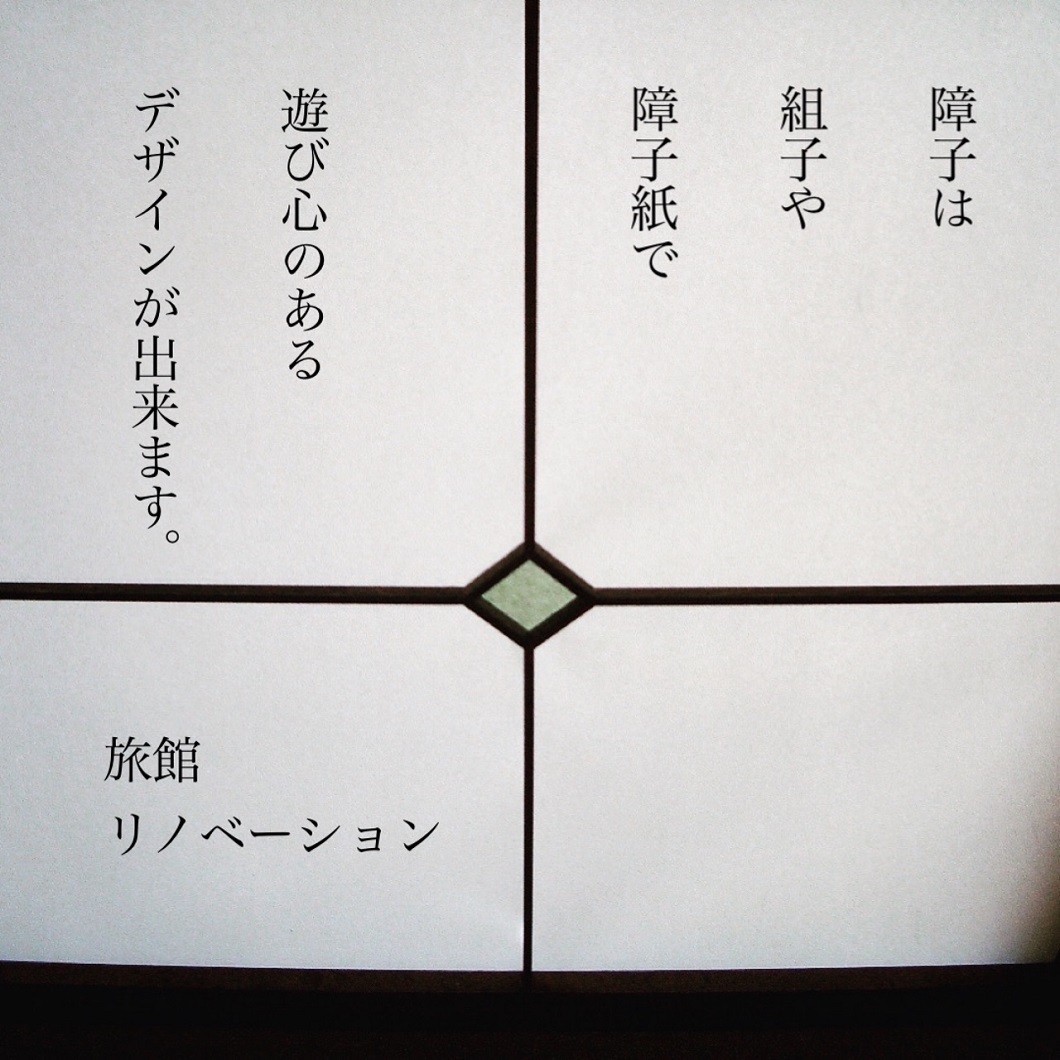 障子は
組子や
障子紙で
遊び心のある
デザインが出来ます。
旅館
リノベーション